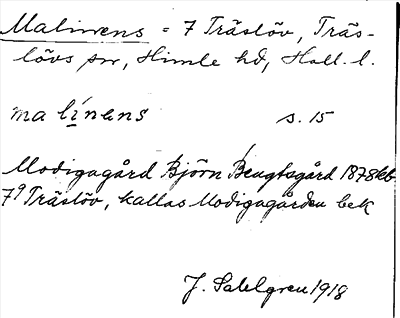 Malinens = 7 Träslöv, Träs-
lövs sn, Himle hd, Hall. l.
ma línens s. 15
Modigagård Björn Bengtsgård 1878 kb
7⁹ Träslöv, kallas Modigagården bek
J. Sahlgren 1918